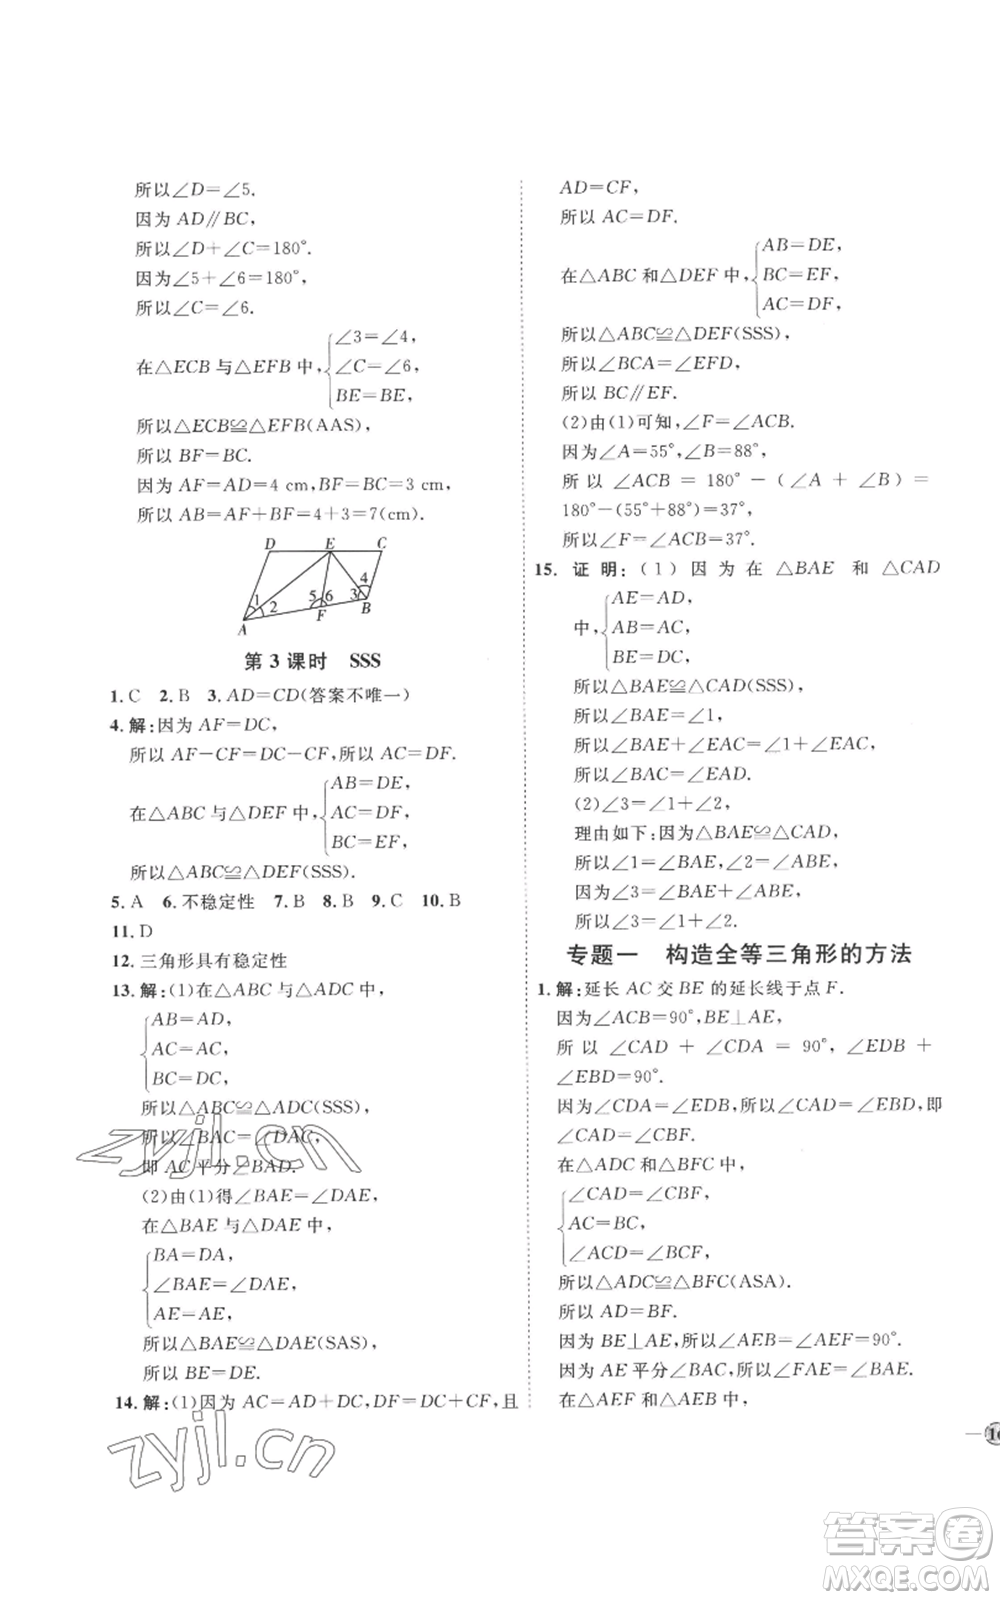 所以∠D=∠5.
因为 AD∥BC,
所以∠D+∠C=180°.
因为∠5+∠6=180°,
所以∠C=∠6.
∠3=∠4,
在△ECB 与△EFB 中, ∠C=∠6,
BE=BE,
所以△ECB≌△EFB(AAS),
所以 BF=BC.
因为 AF=AD=4 cm,BF=BC=3 cm,
所以 AB=AF+BF=4+3=7(cm).
D E C
4
1 2 5 6 3
A F B
第 3 课时 SSS
1.C 2.B 3.AD=CD(答案不唯一)
4.解:因为 AF=DC,
所以 AF-CF=DC-CF,所以 AC=DF.
AB=DE,
在△ABC 与△DEF 中, AC=DF,
BC=EF,
所以△ABC≌△DEF(SSS).
5.A 6.不稳定性 7.B 8.B 9.C 10.B
11.D
12.三角形具有稳定性
13.解:(1)在△ABC 与△ADC 中,
AB=AD,
AC=AC,
BC=DC,
所以△ABC≌△ADC(SSS),
所以∠BAC=∠DAC,
即 AC 平分∠BAD.
(2)由(1)得∠BAE=∠DAE,
在△BAE 与△DAE 中,
BA=DA,
∠BAE=∠DAE,
AE=AE,
所以△BAE≌△DAE(SAS),
所以 BE=DE.
14.解:(1)因为 AC=AD+DC,DF=DC+CF,且
AD=CF,
所以 AC=DF.
AB=DE,
在△ABC 和△DEF 中, BC=EF,
AC=DF,
所以△ABC≌△DEF(SSS),
所以∠BCA=∠EFD,
所以 BC∥EF.
(2)由(1)可知,∠F=∠ACB.
因为∠A=55°,∠B=88°,
所以∠ACB=180°-(∠A+∠B)=
180°-(55°+88°)=37°,
所以∠F=∠ACB=37°.
15.证明:(1)因为在△BAE 和△CAD
AE=AD,
中, AB=AC,
BE=DC,
所以△BAE≌△CAD(SSS),
所以∠BAE=∠1,
所以∠BAE+∠EAC=∠1+∠EAC,
所以∠BAC=∠EAD.
(2)∠3=∠1+∠2,
理由如下:因为△BAE≌△CAD,
所以∠1=∠BAE,∠2=∠ABE,
因为∠3=∠BAE+∠ABE,
所以∠3=∠1+∠2.
专题一 构造全等三角形的方法
1.解:延长 AC 交 BE 的延长线于点 F.
因为∠ACB=90°,BE⊥AE,
所以∠CAD+∠CDA=90°,∠EDB+
∠EBD=90°.
因为∠CDA=∠EDB,所以∠CAD=∠EBD,即
∠CAD=∠CBF.
在△ADC 和△BFC 中,
∠CAD=∠CBF,
AC=BC,
∠ACD=∠BCF,
所以△ADC≌△BFC(ASA).
所以 AD=BF.
因为 BE⊥AE,所以∠AEB=∠AEF=90°.
因为 AE 平分∠BAC,所以∠FAE=∠BAE.
在△AEF 和△AEB 中,
zyjl.cn
zyjl.cn
答案卷
MXQE.COM